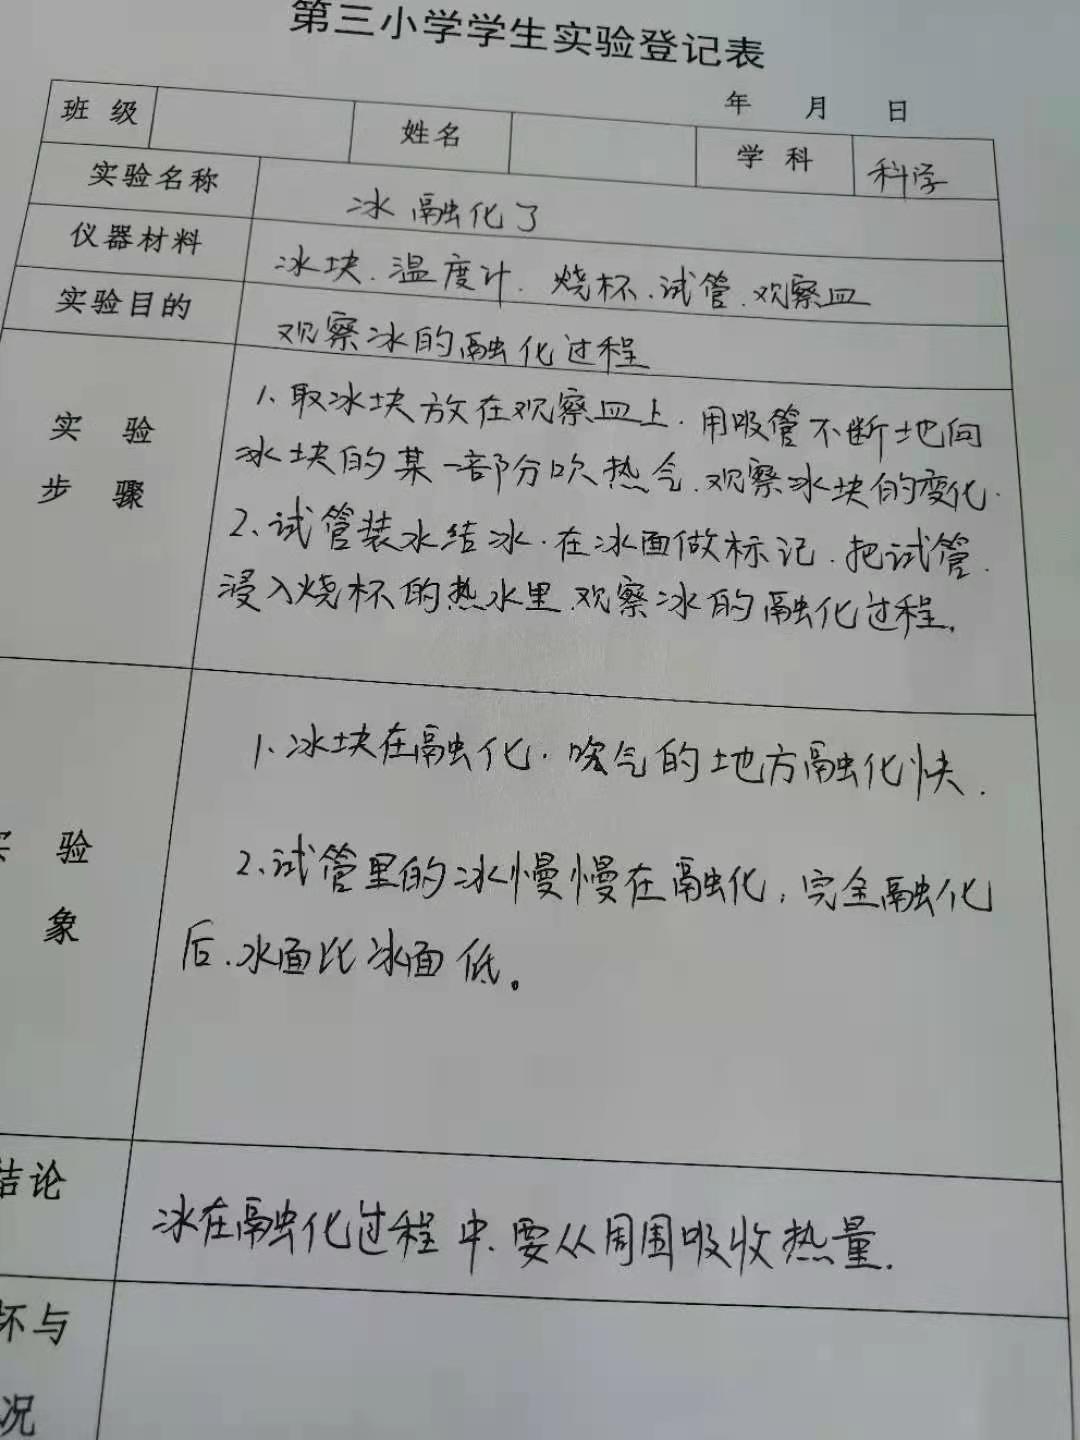 第三小学学生实验登记表
年 月 日
班 级 姓名 学 科 科学
实验名称 冰融化了
仪器材料 冰块、温度计、烧杯、试管、观察皿
实验目的 观察冰的融化过程
实 验
步 骤
1、取冰块放在观察皿上、用吸管不断地向
冰块的某一部分吹热气、观察冰块的变化.
2、试管装水结冰、在冰面做标记、把试管
浸入烧杯的热水里、观察冰的融化过程.
验
象
1、冰块在融化、吹气的地方融化快.
2、试管里的冰慢慢在融化,完全融化
后、水面比冰面低。
结论
冰在融化过程中、要从周围吸收热量.
坏与
况